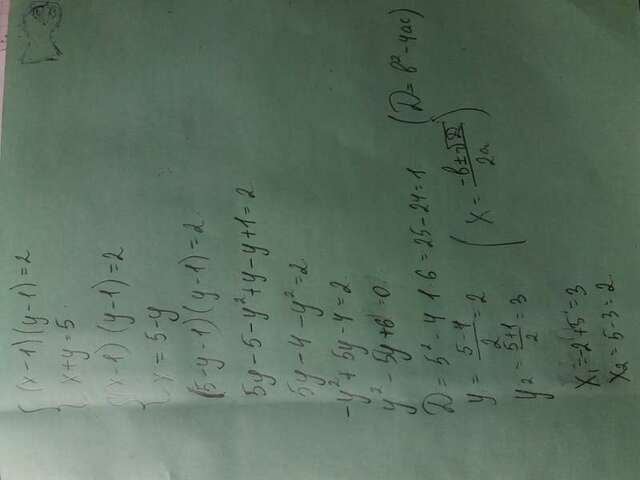 { (x-1)(y-1)=2
x+y=5
{ (x-1)(y-1)=2
x=5-y
(5-y-1)(y-1)=2
5y-5-y²+y-y+1=2
5y-4-y²=2
-y²+5y-4=2
y²-5y+6=0
D=5²-4·1·6=25-24=1 (D=b²-4ac)
y=\frac{5-1}{2}=2 (x=\frac{-b±√D}{2a})
y₂=\frac{5+1}{2}=3
x₁=-2+5=3
x₂=5-3=2